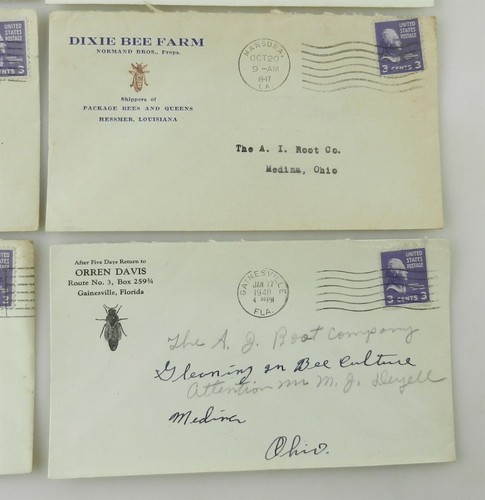 DIXIE BEE FARM
NORMAND BROS., Props.
Shippers of
PACKAGE BEES AND QUEENS
HESSMER, LOUISIANA
MANSURA,
OCT 20
9-AM
1947
LA.
UNITED STATES POSTAGE
3 CENTS 3
The A. I. Root Co.
Medina, Ohio
After Five Days Return to
ORREN DAVIS
Route No. 3, Box 259¾
Gainesville, Florida
GAINESVILLE
JAN 17
1948
4 PM
FLA.
UNITED STATES POSTAGE
3 CENTS 3
The A. J. Root Company
Gleaning in Bee Culture
Attention Mr M. J. Deyell
Medina
Ohio.
3
3